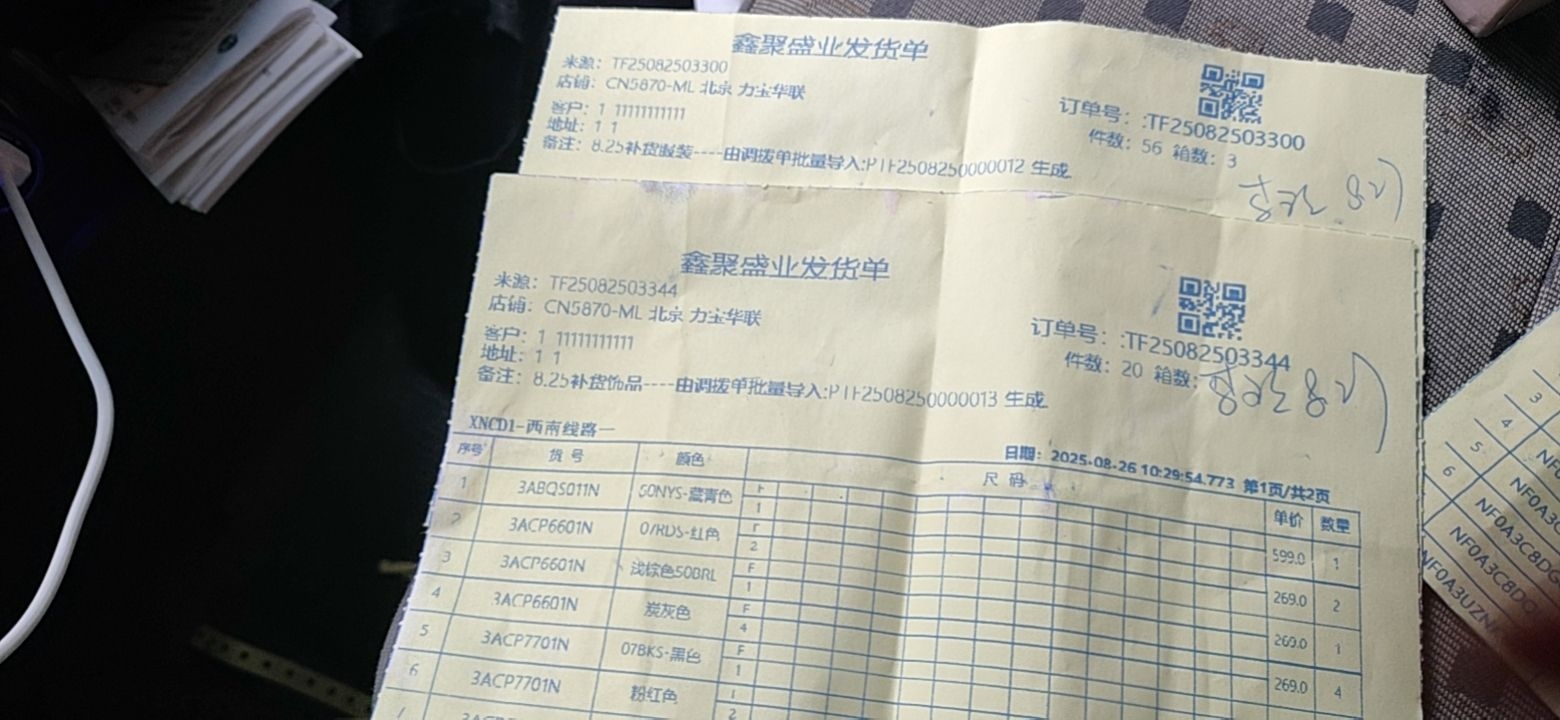 鑫聚盛业发货单
来源：TF25082503300
店铺：CN5870-ML 北京 力宝华联
订单号：:TF25082503300
客户：1 11111111111
件数：56 箱数：3
地址：1 1
备注：8.25补货服装----由调拨单批量导入:PTF2508250000012 生成
鑫聚盛业发货单
来源：TF25082503344
店铺：CN5870-ML 北京 力宝华联
订单号：:TF25082503344
客户：1 11111111111
件数：20 箱数：
地址：1 1
备注：8.25补货饰品----由调拨单批量导入:PTF2508250000013 生成
XNCD1-西南线路一
日期：2025-08-26 10:29:54.773 第1页/共2页
序号 货号 颜色 尺码 单价 数量
1 3ABQS011N 50NYS-藏青色 F 1 599.0 1
2 3ACP6601N 07RDS-红色 F 2 269.0 2
3 3ACP6601N 浅棕色50BRL F 1 269.0 1
4 3ACP6601N 炭灰色 F 4 269.0 4
5 3ACP7701N 07BKS-黑色 F 1
6 3ACP7701N 粉红色 2
3
4
5
6
NF0A3C8DG
NF0A3C8DG
NF0A3UZN